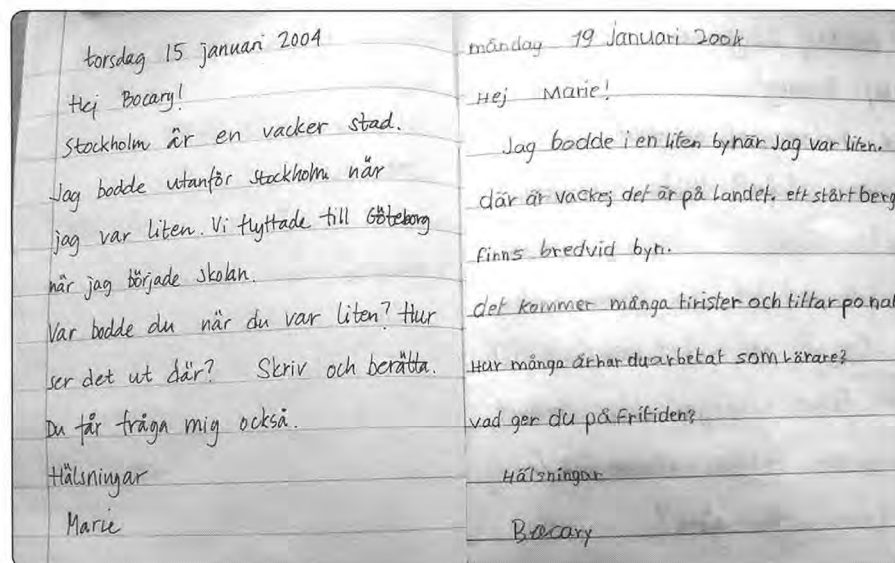 torsdag 15 januari 2004
Hej Bocary!
Stockholm är en vacker stad.
Jag bodde utanför Stockholm när
jag var liten. Vi flyttade till Göteborg
när jag började skolan.
Var bodde du när du var liten? Hur
ser det ut där? Skriv och berätta.
Du får fråga mig också.
Hälsningar
Marie
måndag 19 januari 2004
Hej Marie!
Jag bodde i en liten by när Jag var liten.
där är vackej det är på landet. ett stårt berg
finns bredvid byn.
det kommer många tirister och tittar po
Hur många år har du arbetat som Lärare?
vad ger du på Fritiden?
Hälsningar
Bocary